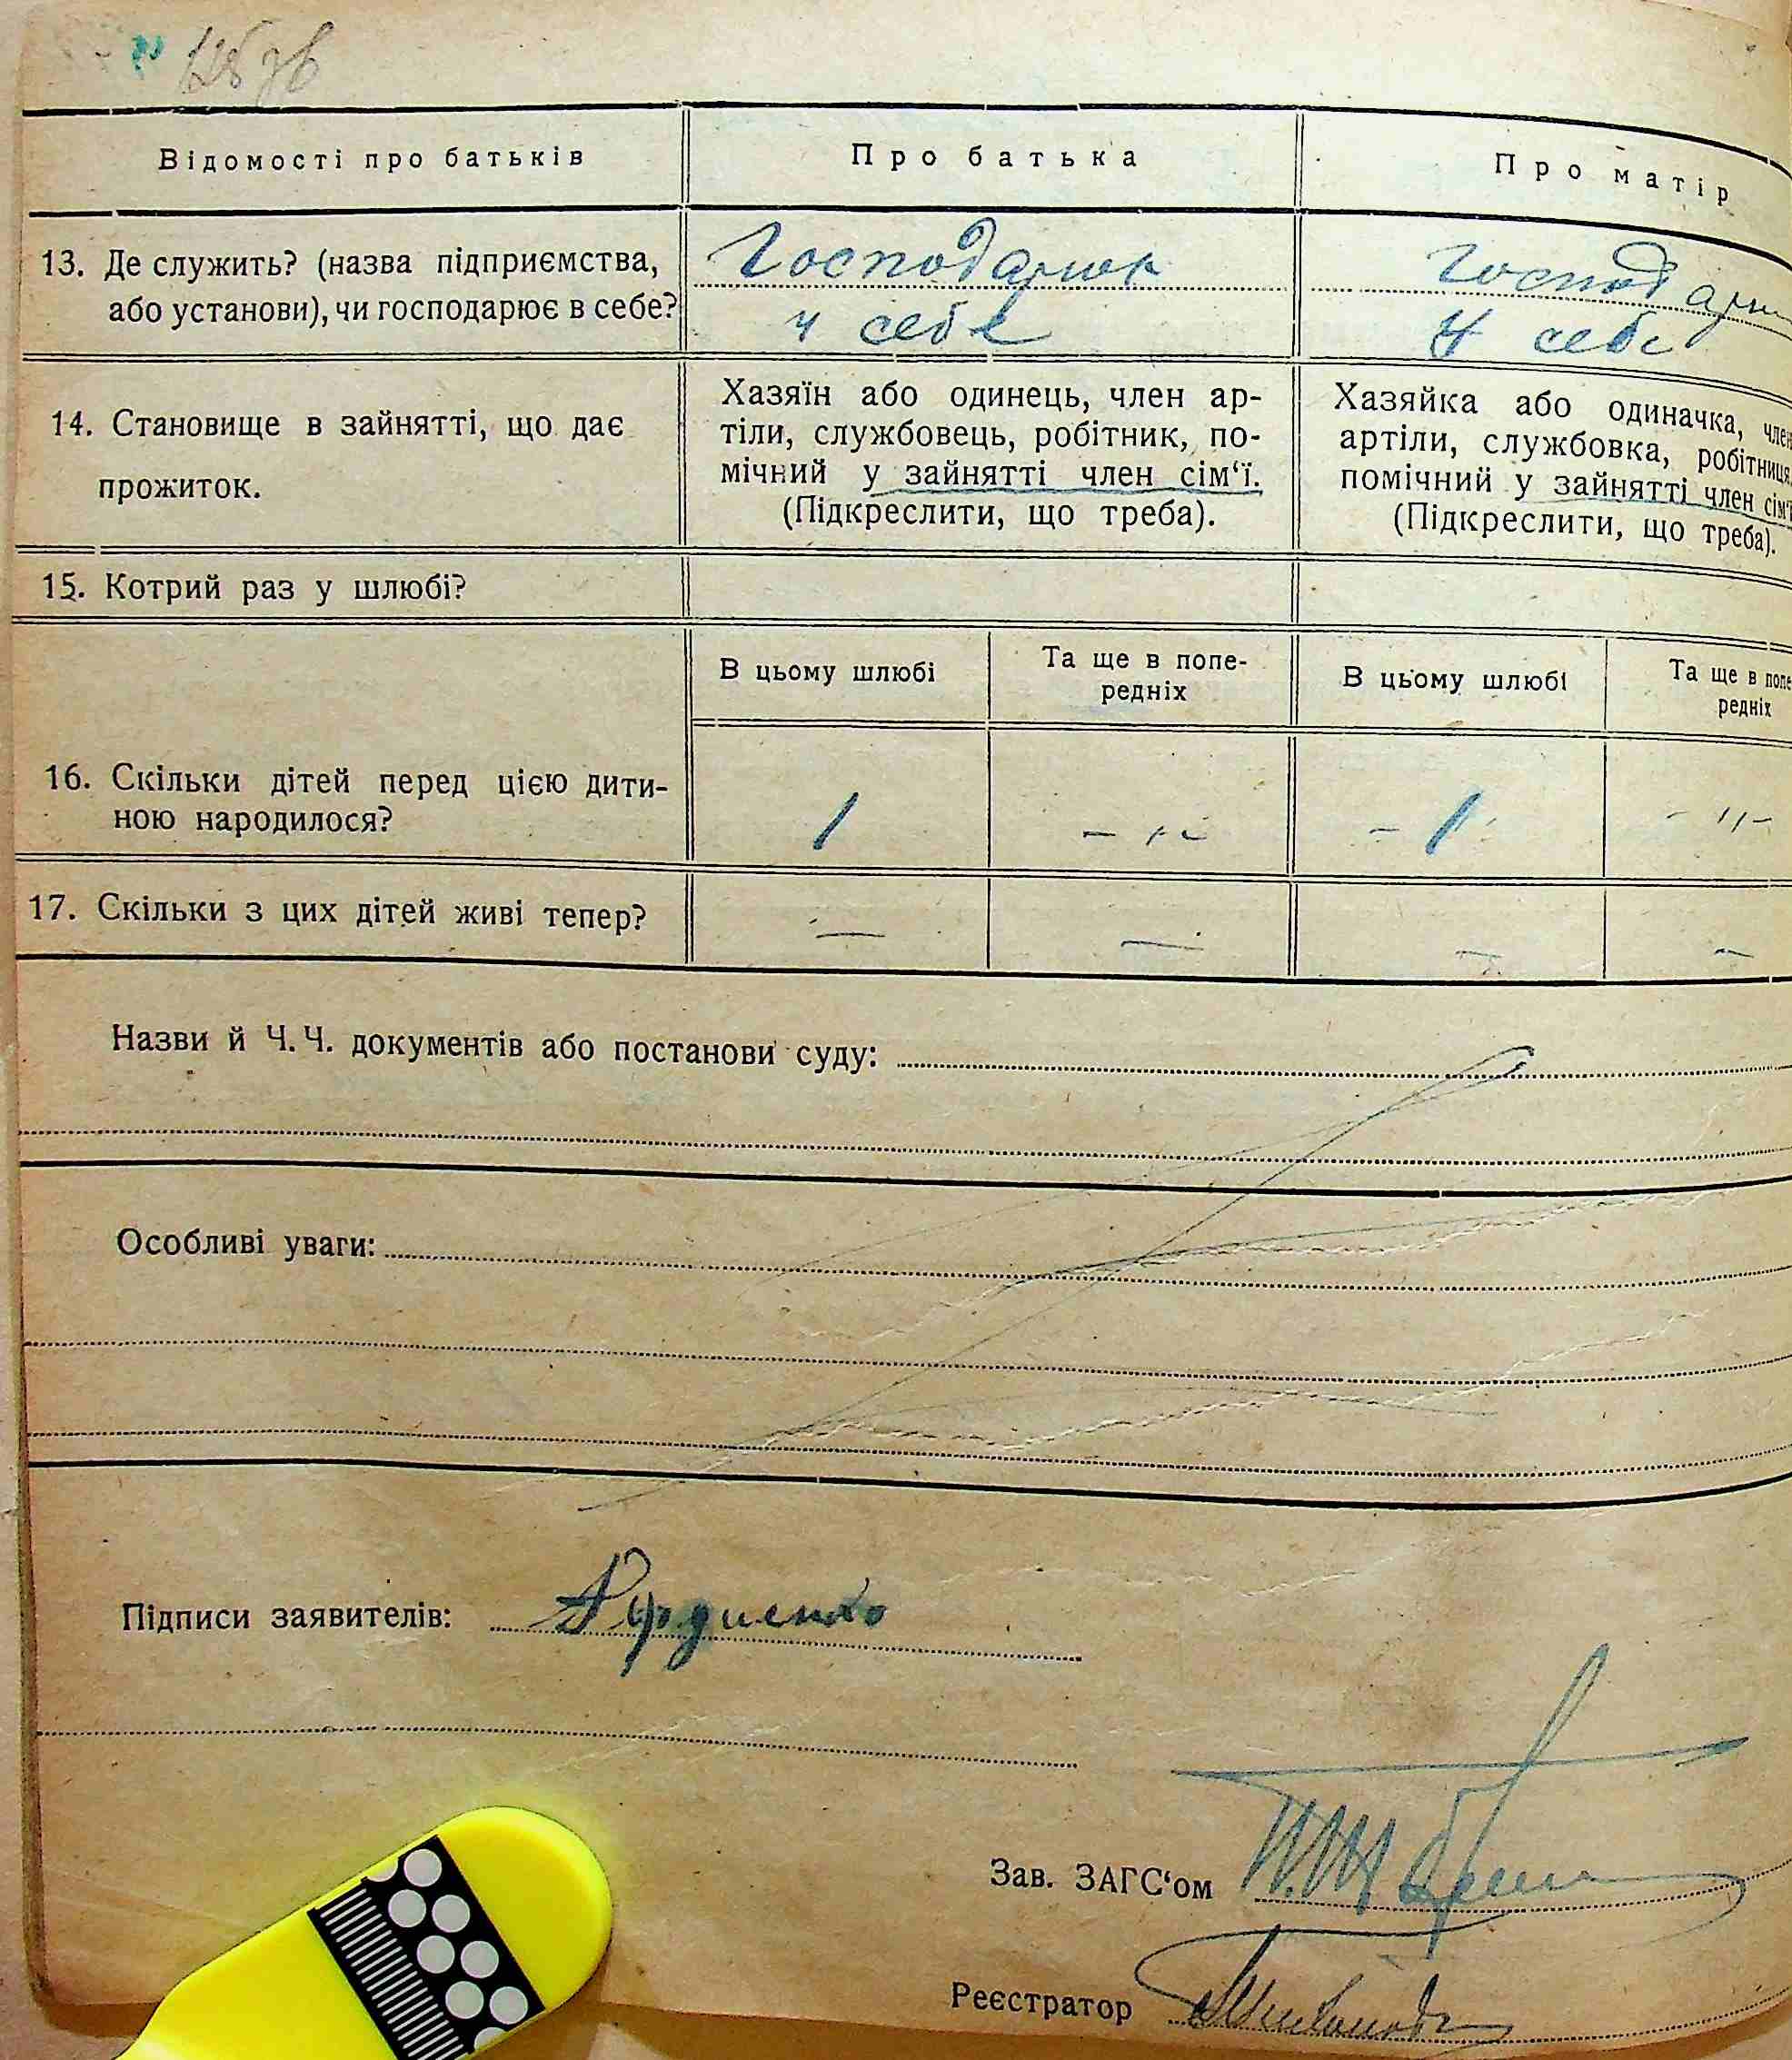 128 зв
Відомості про батьків
Про батька
Про матір
13. Де служить? (назва підприємства,
або установи), чи господарює в себе?
Господарюк
у себе
Господарю
У себе
14. Становище в зайнятті, що дає
прожиток.
Хазяїн або одинець, член ар-
тіли, службовець, робітник, по-
мічний у зайнятті член сім‘ї.
(Підкреслити, що треба).
Хазяйка або одиначка, член
артіли, службовка, робітниця,
помічний у зайнятті член сім‘ї
(Підкреслити, що треба).
15. Котрий раз у шлюбі?
В цьому шлюбі
Та ще в попе-
редніх
В цьому шлюбі
Та ще в попе
редніх
16. Скільки дітей перед цією дити-
ною народилося?
1
– „ –
– 1
– „ –
17. Скільки з цих дітей живі тепер?
—
—
—
—
Назви й Ч. Ч. документів або постанови суду:
Особливі уваги:
Підписи заявителів:
Зав. ЗАГС‘ом
Реєстратор